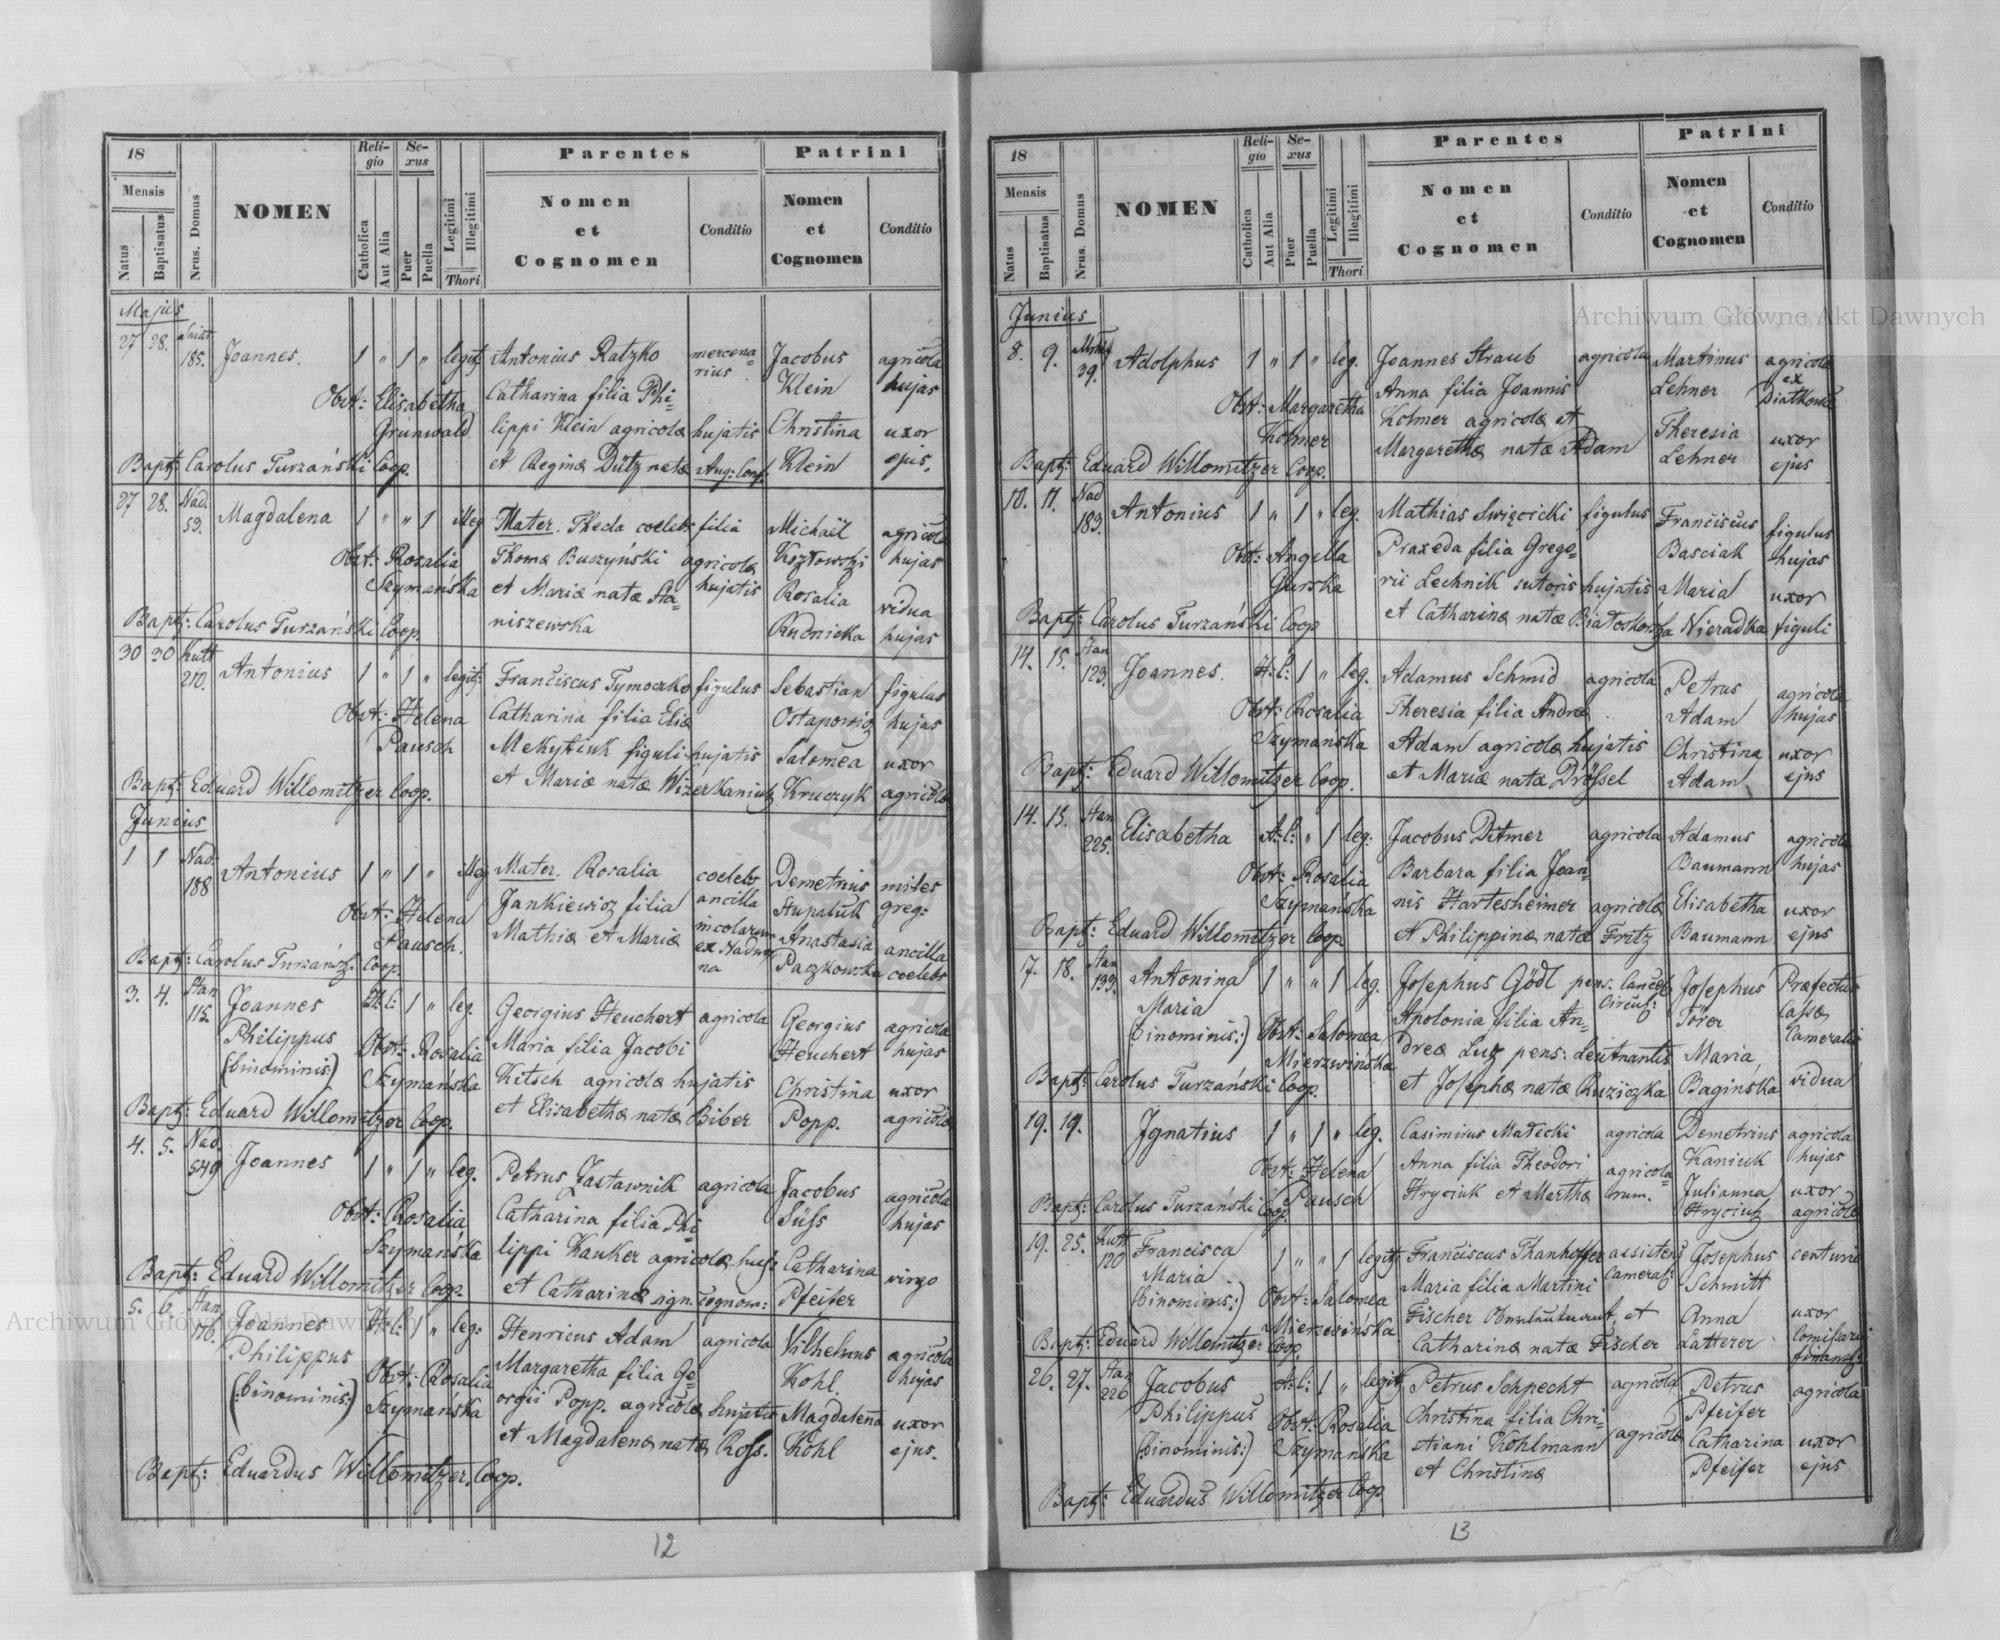 18
Mensis
Natus
Baptisatus
Nrus. Domus
NOMEN
Reli-
gio
Catholica
Aut Alia
Se-
xus
Puer
Puella
Legitimi
Illegitimi
Thori
Parentes
Nomen
et
Cognomen
Conditio
Patrini
Nomen
et
Cognomen
Conditio
Majus
27 28. 185. Joannes. 1 " 1 " legit: Antonius Ratzko mercena= Jacobus agricola
rius Klein hujas
Obst: Elisabetha Catharina filia Phi=
Grunwald lippi Klein agricolæ hujatis Christina uxor
Bapt: Carolus Turzański Coop. et Reginæ Dütz natæ Aug: Conf. Klein ejus.
27 28. Nad. 59. Magdalena 1 " " 1 illeg Mater. Thecla coelebs filia Michaël agricola
Obst: Rosalia Thomæ Buczyński agricolæ hujas
Szymańska et Mariæ natæ Sta= hujatis Rosalia vidua
Bapt: Carolus Turzański Coop. niszewska Rudnicka hujas
30 30 Kutt 210. Antonius 1 " 1 " legit: Franciscus Tymoczko figulus Sebastian figulus
Obst: Helena Catharina filia Eliæ Ostapowicz hujas
Pausch Mekytiuk figuli hujatis Salomea uxor
Bapt: Eduard Willomitzer Coop. et Mariæ natæ Wizerkaniuk Kruczyk agricolæ
Junius
1 1 Nad. 188 Antonius 1 " 1 " illeg Mater. Rosalia coelebs Demetrius miles
Obst: Helena Jankiewicz filia ancilla Stupaluk greg:
Pausch. Mathiæ et Mariæ incolarum Anastasia ancilla
Bapt: Carolus Turzańs: Coop. ex Nadwor na Paczkowska coelebs
3. 4. Stan 115. Joannes H: l: 1 " leg. Georgius Heuchert agricola Georgius agricola
Philippus Obst: Rosalia Maria filia Jacobi Heuchert hujas
(binominis:) Szymańska Kitsch agricolæ hujatis Christina uxor
Bapt: Eduard Willomitzer Coop. et Elisabethæ natæ Biber Popp. agricolæ
4. 5. Nad. 549 Joannes 1 " 1 " leg. Petrus Zastawnik agricola Jacobus agricola
Obst: Rosalia Catharina filia Phi= Süss hujas
Szymańska lippi Kauker agricolæ huj: Catharina virgo
Bapt: Eduard Willomitzer Coop. et Catharinæ ign. cognom: Pfeifer
5. 6. Stan 116. Joannes H: l: 1 " leg: Henricus Adam agricola Vilhelmus agricola
Philippus Obst: Rosalia Margaretha filia Ge= Kohl. hujas
(binominis:) Szymańska orgii Popp. agricolæ hujatis Magdalena uxor
et Magdalenæ natæ Ross. Kohl ejus.
Bapt: Eduardus Willomitzer, Coop.
12
18
Mensis
Natus
Baptisatus
Nrus. Domus
NOMEN
Reli-
gio
Catholica
Aut Alia
Se-
xus
Puer
Puella
Legitimi
Illegitimi
Thori
Parentes
Nomen
et
Cognomen
Conditio
Patrini
Nomen
et
Cognomen
Conditio
Archiwum Główne Akt Dawnych
Junius
8. 9. 39. Adolphus 1 " 1 " leg. Joannes Straub agricola Martinus agricola
Obst: Margaretha Anna filia Joannis Lehner ex
Kolmer Kolmer agricolæ et Theresia uxor
Bapt: Eduard Willomitzer Coop. Margarethæ natæ Adam Lehner ejus
10. 11. Nad 183. Antonius 1 " 1 " leg. Mathias Święcicki figulus Franciscus figulus
Obst: Angella Praxeda filia Grego= Basciak hujas
Gurska rii Lechnik sutoris hujatis Maria uxor
Bapt: Carolus Turzański Coop et Catharinæ natæ Nieradka figuli
14. 15. Stan 123. Joannes. H: l: 1 " leg. Adamus Schmid agricola Petrus agricola
Obst: Rosalia Theresia filia Andreæ Adam hujas
Szymańska Adam agricolæ hujatis Christina uxor
Bapt: Eduard Willomitzer Coop. et Mariæ natæ Drössel Adam ejus
14. 15. Stan 225. Elisabetha H: l: " 1 leg: Jacobus Ditmer agricola Adamus agricola
Obst: Rosalia Barbara filia Joan= Baumann hujas
Szymańska nis Hartesheimer agricolæ Elisabetha uxor
Bapt: Eduard Willomitzer Coop et Philippinæ natæ Fritz Baumann ejus
17. 18. Stan 133. Antonina 1 " " 1 leg. Josephus Gödl pens: Cancel: Josephus Præfectus
Maria Circul: Törer Cassæ
(binominis:) Obst: Salomea Apolonia filia An= Cameralis
Mierzwińska dreæ Lutz pens: Leutnantis Maria
Bapt: Carolus Turzański Coop. et Josephæ natæ Ruziczka Bagińska vidua
19. 19. Ignatius 1 " 1 " leg. Casimirus Małecki agricola Demetrius agricola
Obst: Helena Anna filia Theodori agricola= Kaniuk hujas
Pausch Hryciuk et Marthæ rum. Julianna uxor
Bapt: Carolus Turzański Coop. Hryciuk agricolæ
19. 25. Kutt 120 Francisca 1 " " 1 legit Franciscus Thanhoffer assistens Josephus centurio
Maria Cameral: Schmitt
(binominis:) Obst: Salomea Maria filia Martini
Mierzwińska Fischer et Anna uxor
Bapt: Eduard Willomitzer Coop. Catharinæ natæ Fischer Latterer Comisarii
finanz:
26. 27. Stan 226 Jacobus H: l: 1 " legit Petrus Schpecht agricola Petrus agricola
Philippus Obst: Rosalia Christina filia Chri= Pfeifer
(binominis:) Szymańska stiani Kohlmann agricolæ Catharina uxor
et Christinæ Pfeifer ejus
Bapt: Eduardus Willomitzer Coop
13
Archiwum Główne Akt Dawnych